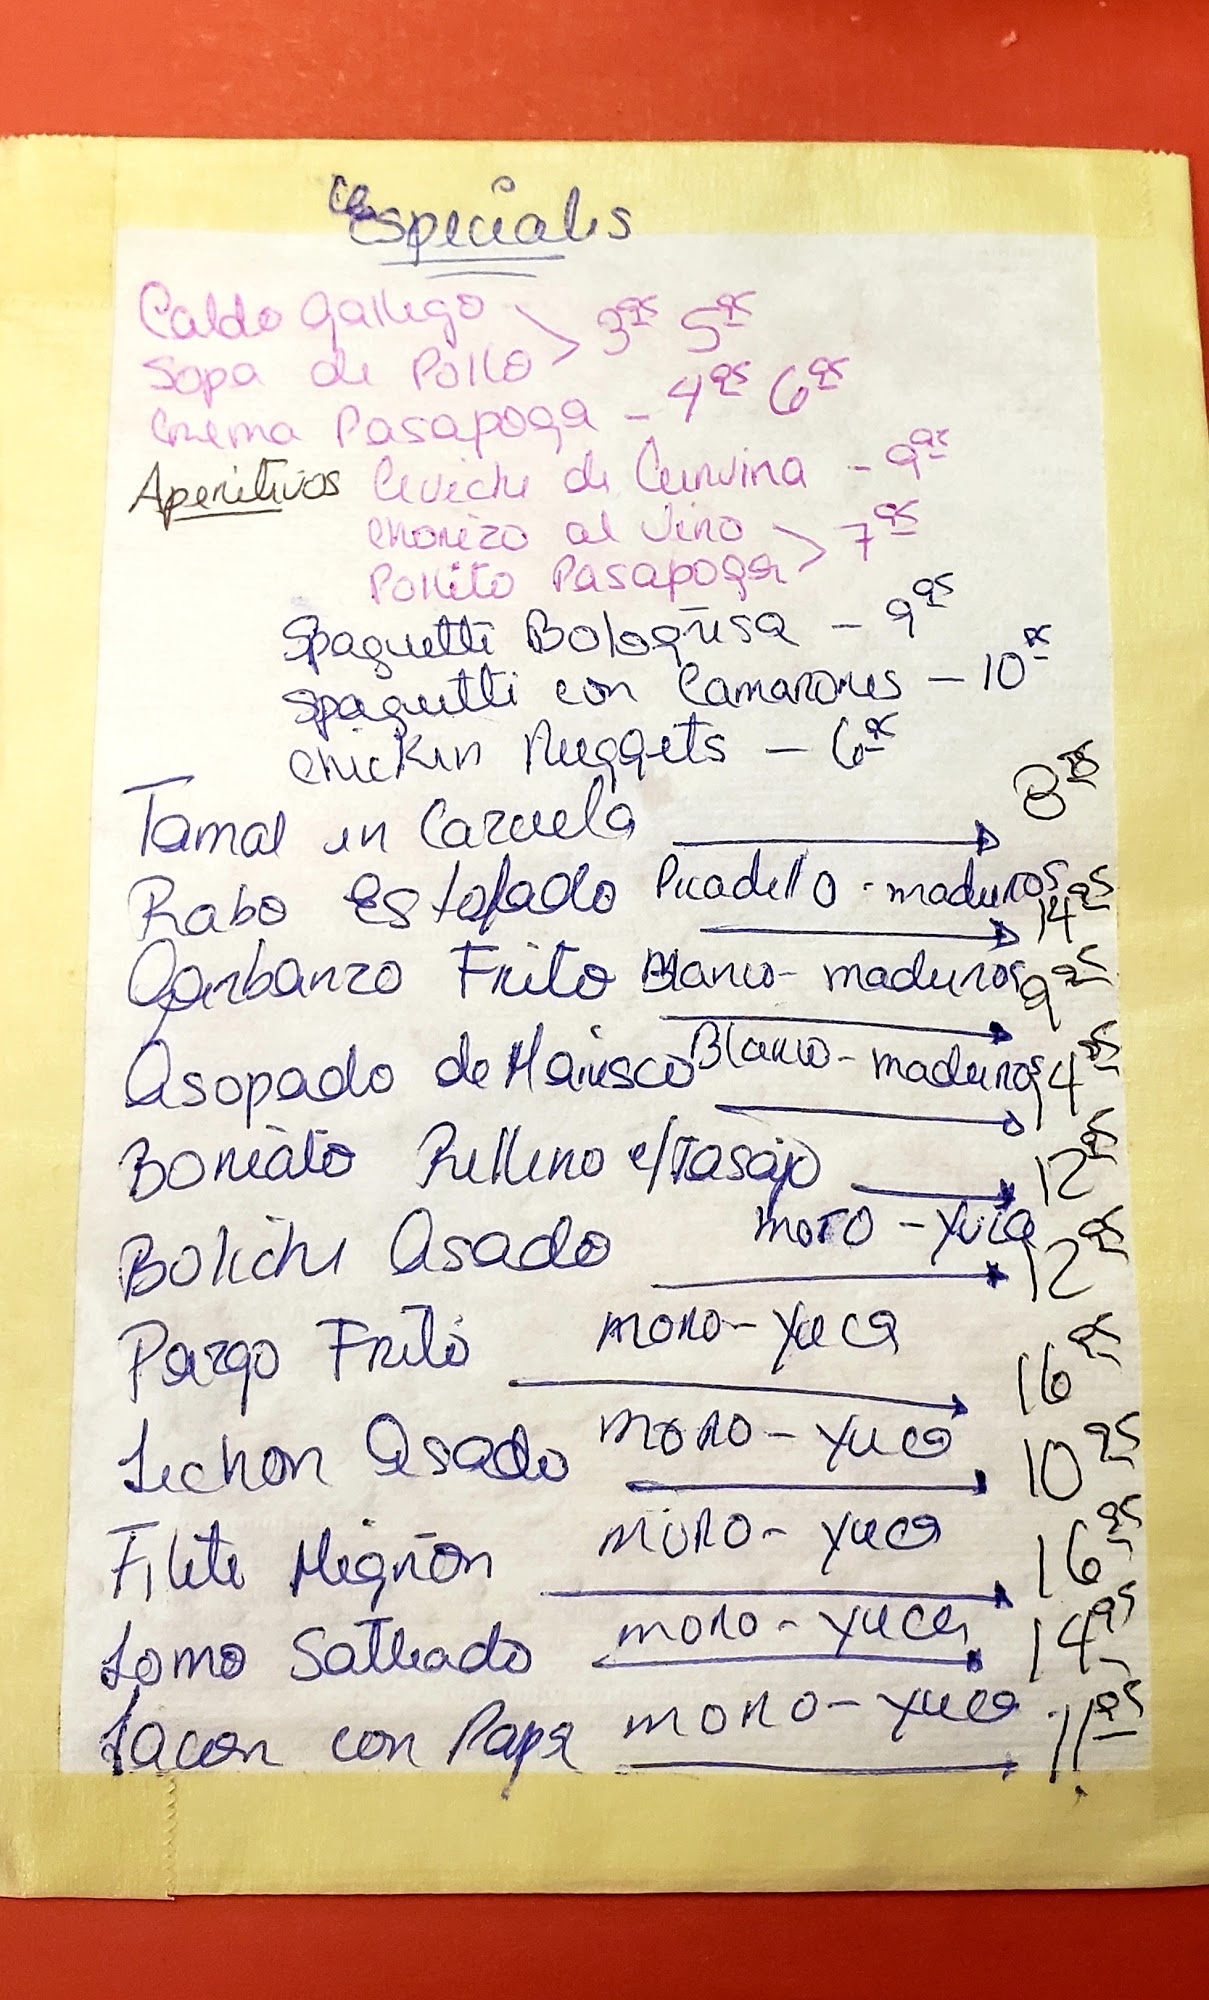 Especiales
Caldo Gallego
Sopa de Pollo > 3.95 5.95
Crema Pasapoga - 4.95 6.95
Aperitivos Ceviche de Curvina - 9.95
Chorizo al Vino
Pollito Pasapoga > 7.95
Spaguetti Bologñesa - 9.95
Spaguetti con Camarones - 10.95
Chicken Nuggets - 6.95
Tamal en Cazuela 8.95
Rabo Estofado Picadillo - maduros 14.95
Garbanzo Frito Blanco - maduros 9.95
Asopado de Marisco Blanco - maduros 14.95
Boniato Relleno c/Tasajo 12.95
Boliche Asado moro - yuca 12.95
Pargo Frito moro - yuca 16.95
Lechon Asado moro - yuca 10.95
Filete Migñon moro - yuca 16.95
Lomo Salteado moro - yuca 14.95
Lacon con Papa moro - yuca 11.95